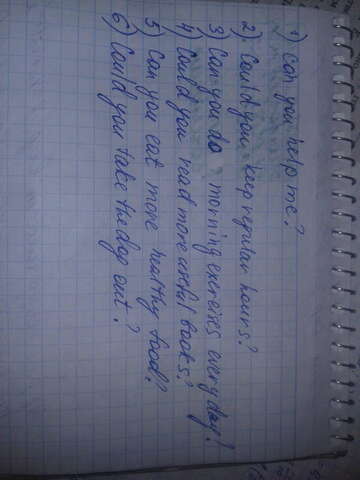 1) Can you help me?
2) Could you keep regular hours?
3) Can you do morning exercises every day?
4) Could you read more useful books?
5) Can you eat more healthy food?
6) Could you take the dog out?